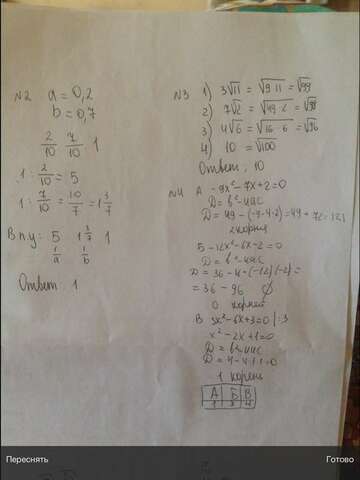 N2 a = 0,2
b = 0,7
2/10 7/10 1
1 : 2/10 = 5
1 : 7/10 = 10/7 = 1 3/7
В п.у: 5 1 3/7 1
1/a 1/b
Ответ 1
N3 1) 3√11 = √9·11 = √99
2) 7√2 = √49·2 = √98
3) 4√6 = √16·6 = √96
4) 10 = √100
Ответ: 10
N4 А -9x²-7x+2=0
D = b²-4ac
D = 49-(-4·9·2)=49+72=121
2 корня
Б -12x²-6x-2=0
D = b²-4ac
D = 36-4·(-12)(-2)=
= 36-96 ∅
0 корней
В 3x²-6x+3=0 | :3
x²-2x+1=0
D = b²-4ac
D = 4-4·1·1=0
1 корень
А Б В
Переснять
Готово